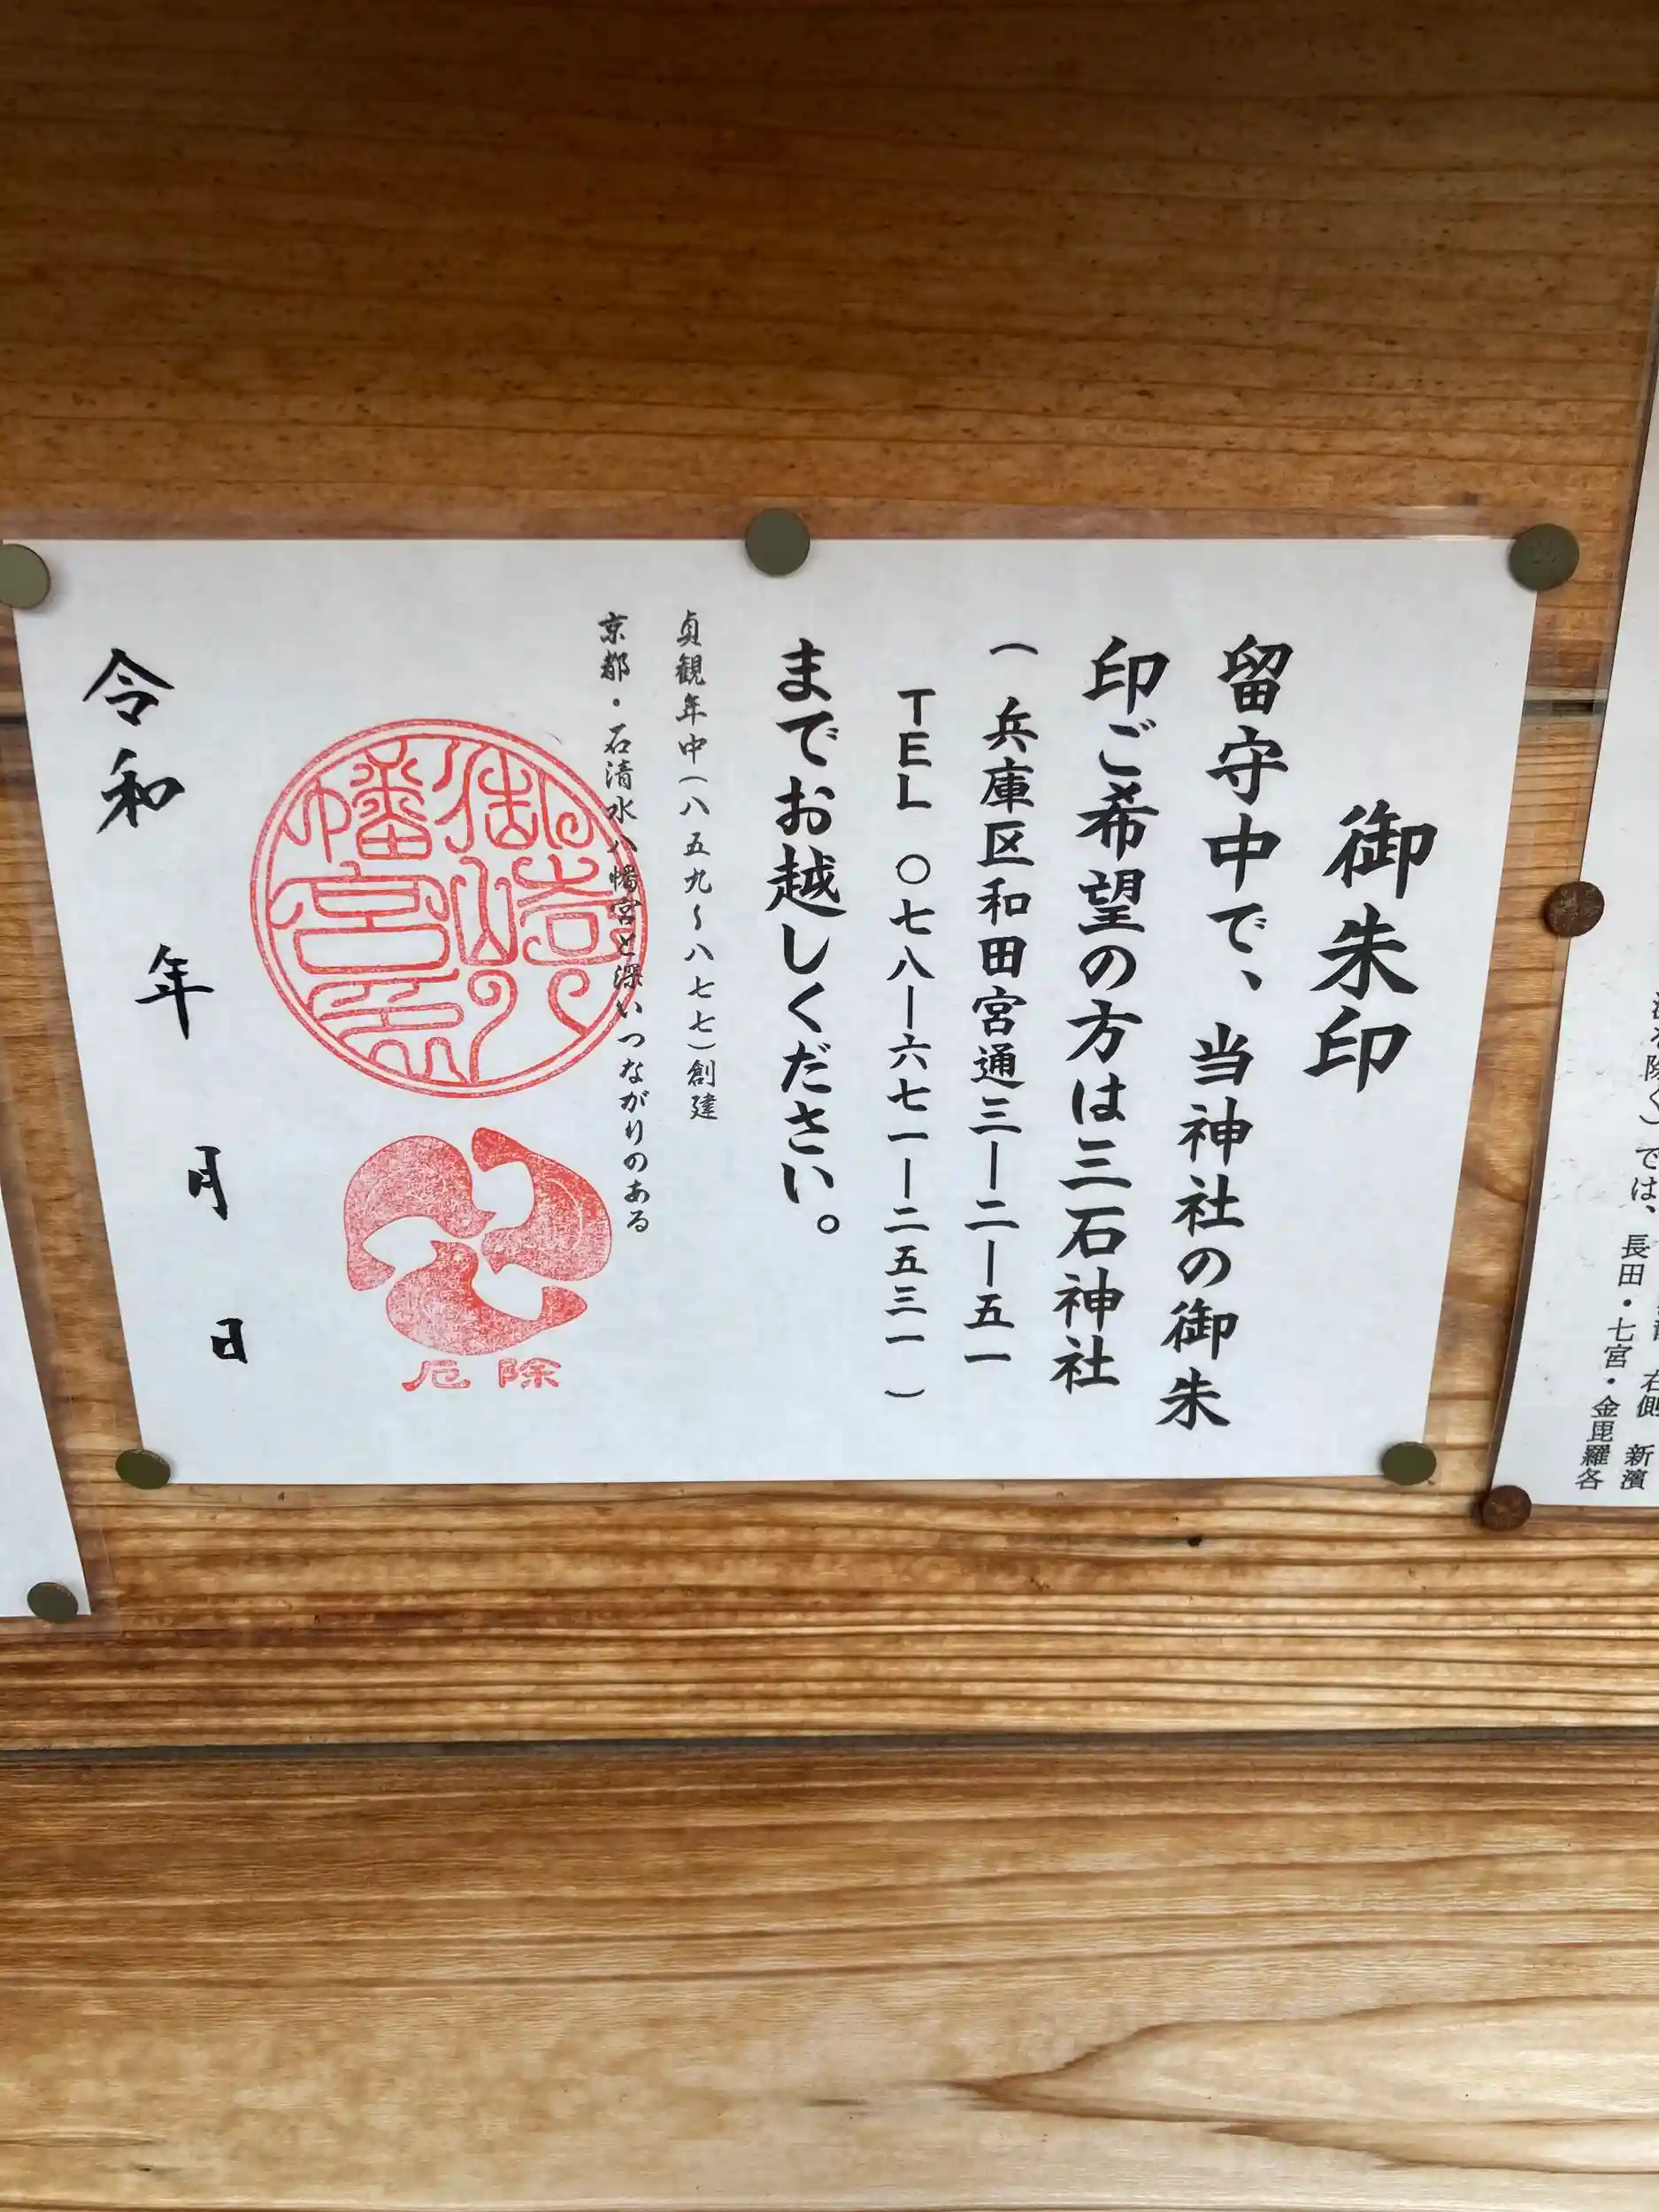 御朱印
留守中で、当神社の御朱
印ご希望の方は三石神社
（兵庫区和田宮通三ー二ー五一
TEL 〇七八ー六七一ー二五三一）
までお越しください。
貞観年中（八五九〜八七七）創建
京都・石清水八幡宮と深いつながりのある
御崎八
幡宮印
厄除
令和 年 月 日
では、長田・七宮・金毘羅各
右側 新濱